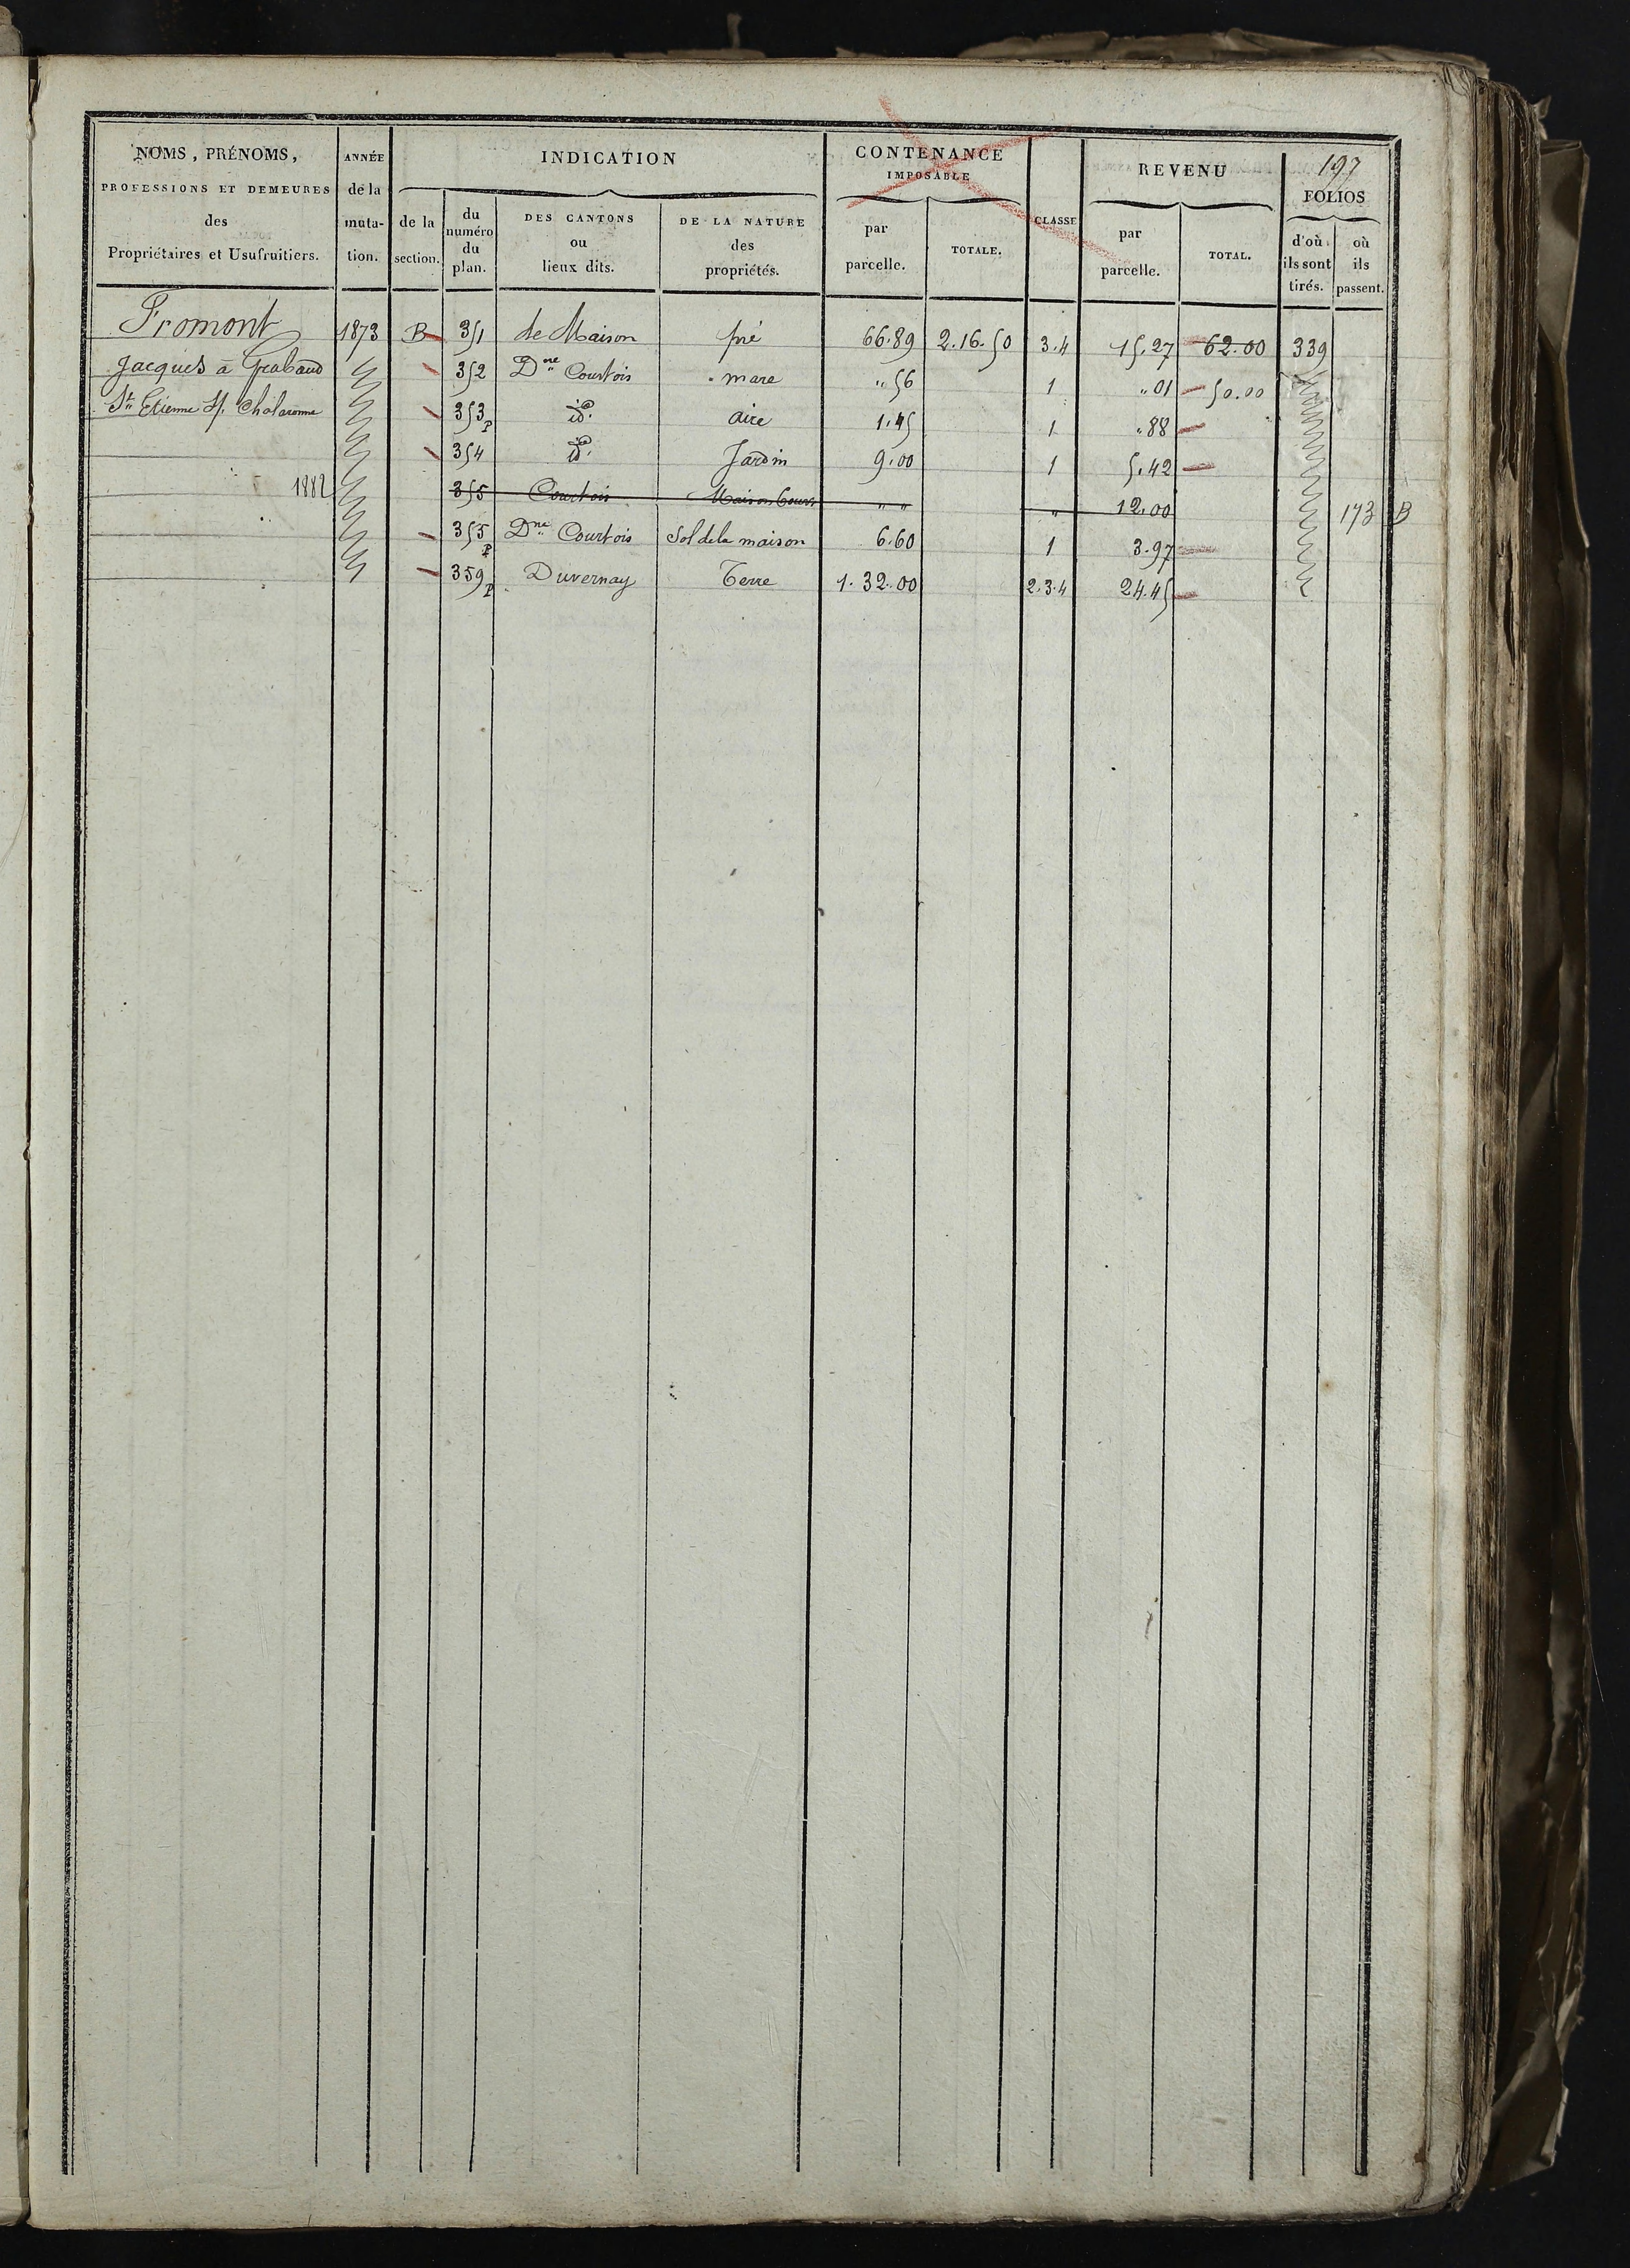 197
NOMS, PRÉNOMS,
PROFESSIONS ET DEMEURES
des
Propriétaires et Usufruitiers.
ANNÉE
de la
muta-
tion.
INDICATION
de la
section.
du
numéro
du
plan.
DES CANTONS
ou
lieux dits.
DE LA NATURE
des
propriétés.
CONTENANCE
IMPOSABLE
par
parcelle.
TOTALE.
CLASSE
REVENU
par
parcelle.
TOTAL.
FOLIOS
d'où
ils sont
tirés.
où
ils
passent.
Fromont 1873 B 351 de Maison pré 66.89 2.16.50 3.4 15.27 62.00 339
Jacques à 352 Dne Courtois mare " 56 1 " 01 50.00
St Etienne s/ Chalaronne 353 P id. aire 1.45 1 " 88
354 id. Jardin 9.00 1 5.42
1882 355 Courtois Maison Cour " " " 12.00 173 B
355 P Dne Courtois Sol de la maison 6.60 1 3.97
359 P Duvernay Terre 1.32.00 2.3.4 24.45